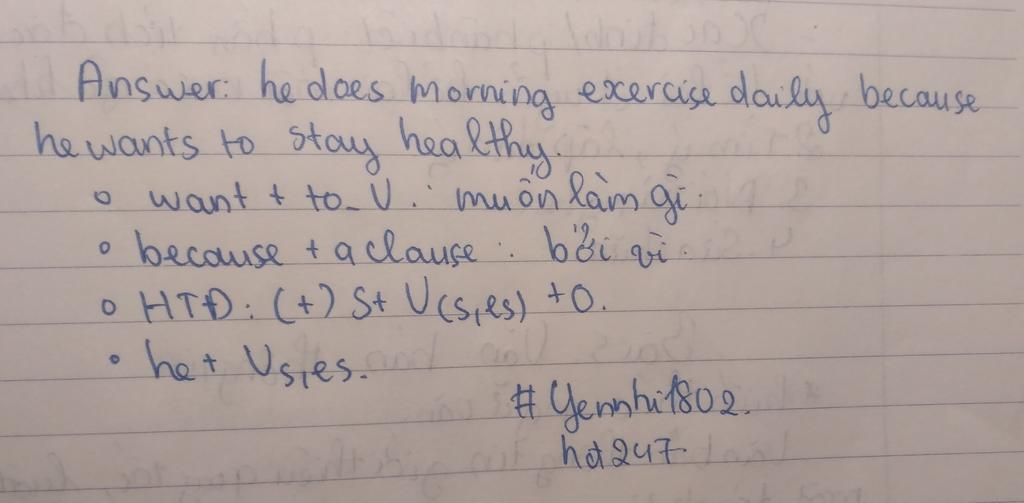 Answer: he does morning exercise daily because
he wants to stay healthy.
want + to_V : muốn làm gì.
because + a clause : bởi vì.
HTĐ : (+) S+ V(s,es) +O.
he + Vs,es.
#Yennhi1802.
hot247.